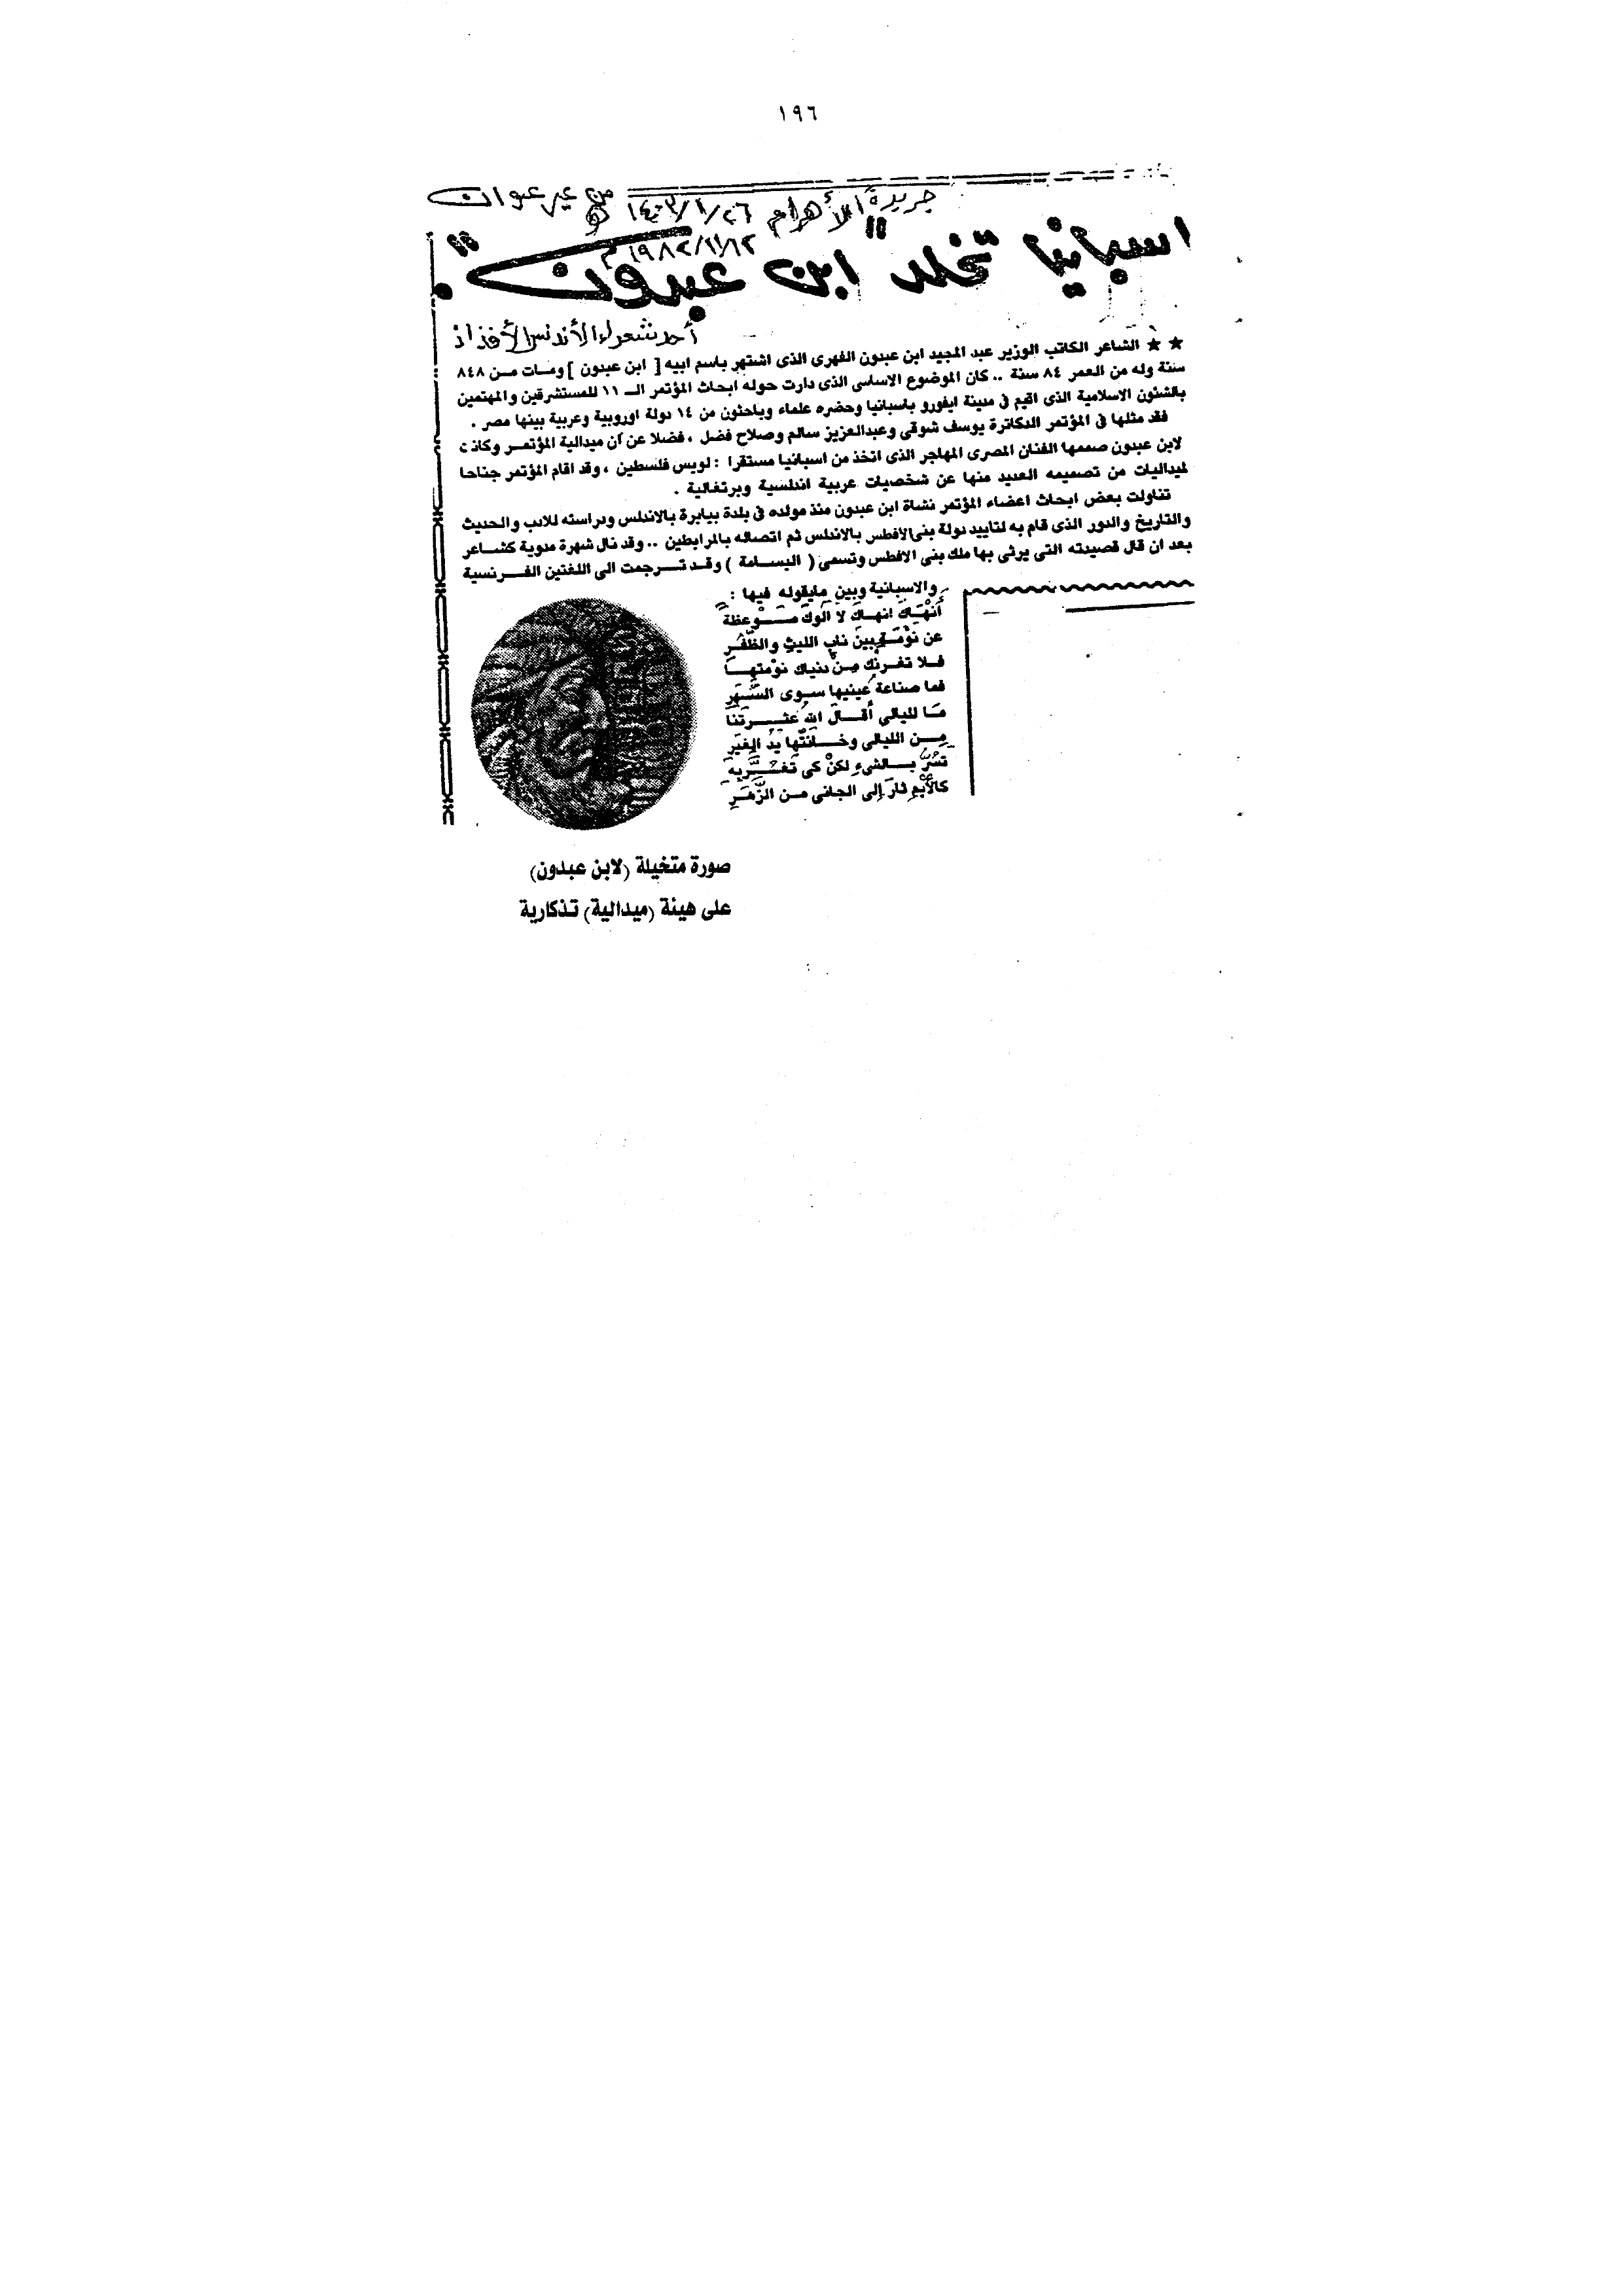 ١٩٦
جريدة الأهرام ١٤٠٣/١/٢٦ هـ من غير عنوان
١٩٨٢/١١/١٢ م
اسبانيا تخلد "ابن عبدون".
أحد شعراء الأندلس الأفذاذ
★ ★ الشاعر الكاتب الوزير عبد المجيد ابن عبدون الفهرى الذى اشتهر باسم ابيه [ ابن عبدون ] ومات من ٨٤٨
سنة وله من العمر ٨٤ سنة .. كان الموضوع الاساسى الذى دارت حوله ابحاث المؤتمر الـ ١١ للمستشرقين والمهتمين
بالشئون الاسلامية الذى اقيم فى مدينة ايفورو باسبانيا وحضره علماء وباحثون من ١٤ دولة اوروبية وعربية بينها مصر .
فقد مثلها فى المؤتمر الدكاترة يوسف شوقى وعبدالعزيز سالم وصلاح فضل ، فضلا عن أن ميدالية المؤتمر وكانت
لابن عبدون صممها الفنان المصرى المهاجر الذى اتخذ من اسبانيا مستقرا : لويس فلسطين ، وقد اقام المؤتمر جناحا
لميداليات من تصميمه العديد منها عن شخصيات عربية اندلسية وبرتغالية .
تناولت بعض ابحاث اعضاء المؤتمر نشاة ابن عبدون منذ مولده فى بلدة بيابرة بالاندلس ودراسته للادب والحديث
والتاريخ والدور الذى قام به لتاييد دولة بنى الافطس بالاندلس ثم اتصاله بالمرابطين .. وقد نال شهرة مدوية كشاعر
بعد ان قال قصيدته التى يرثى بها ملك بنى الافطس وتسمى ( البسامة ) وقد ترجمت الى اللغتين الفرنسية
والاسبانية وبين مايقوله فيها :
أنْهَاكَ انهاكَ لا آلوكَ مَوْعظةً
عن نوْمَةٍ بينَ نابِ الليثِ والظّفُرِ
فلا تغرنْكَ مِنْ دنياك نوْمتها
فما صناعة عينيها سوى السَّهَرِ
مَا لليالى أقالَ اللهُ عثرتَنَا
مِن الليالى وخانتْها يدُ الغِيَرِ
تسُرّ بالشىءِ لكنْ كى تغُرَّ به
كالأيْمِ ثارَ إلى الجانى من الزَّهَرِ
صورة متخيلة (لابن عبدون)
على هيئة (ميدالية) تذكارية